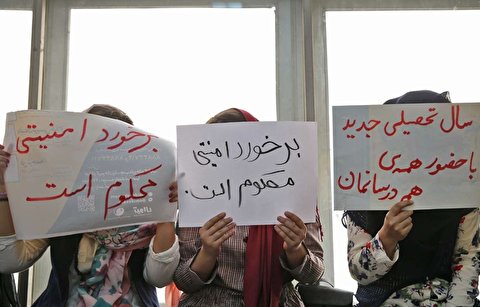 سال تحصیلی جدید
با حضور همه‌ی
هم‌درسانمان
برخورد امنیتی
محکوم است.
برخورد امنیتی
محکوم است